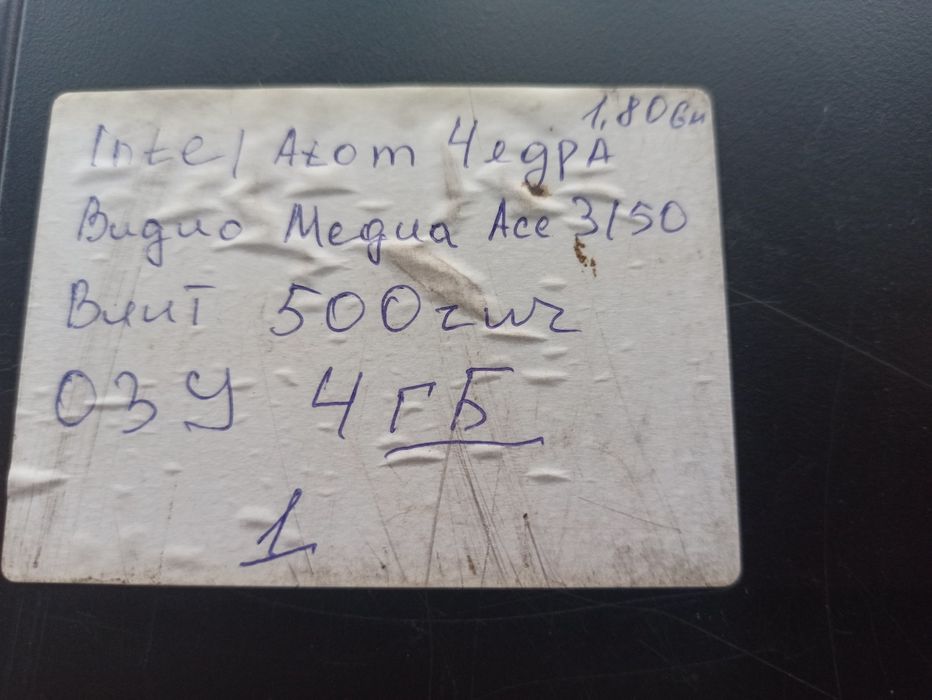 1.80Gн
Intel Atom 4 едрА
Видио Медиа Acе 3150
Винт 500 гиг
ОЗУ 4 гБ
1